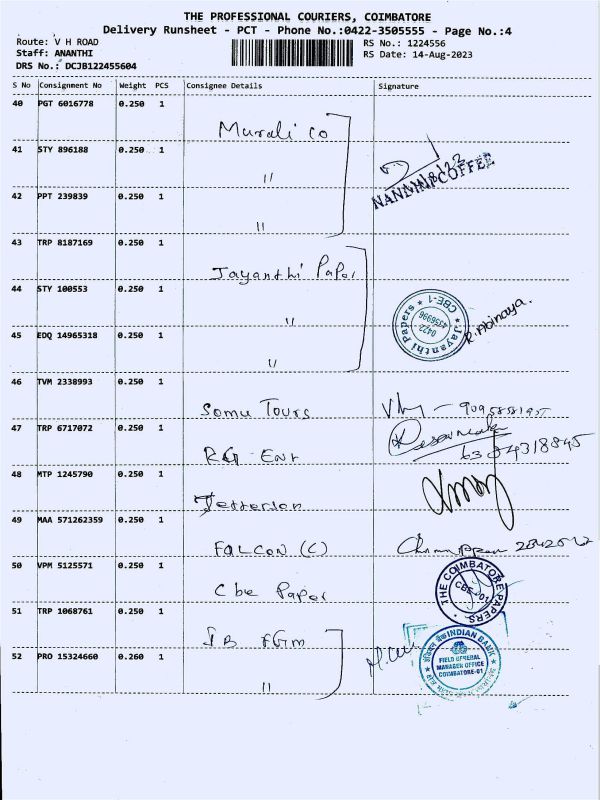 THE PROFESSIONAL COURIERS, COIMBATORE
Delivery Runsheet - PCT - Phone No.:0422-3505555 - Page No.:4
Route: V H ROAD
RS No.: 1224556
Staff: ANANTHI
RS Date: 14-Aug-2023
DRS No.: DCJB122455604
S No Consignment No Weight PCS Consignee Details Signature
40 PGT 6016778 0.250 1
Murali co
41 STY 896188 0.250 1
"
NANDHI COFFEE
42 PPT 239839 0.250 1
"
43 TRP 8187169 0.250 1
Jayanthi Paper
44 STY 100553 0.250 1
"
Jayanthi Papers CBE-1
0422
4356996
R. Abinaya.
45 EDQ 14965318 0.250 1
"
46 TVM 2338993 0.250 1
Somu Tours
47 TRP 6717072 0.250 1
RG Ent
48 MTP 1245790 0.250 1
Jefferson
49 MAA 571262359 0.250 1
FALCON (C)
50 VPM 5125571 0.250 1
Cbe Paper
THE COIMBATORE PAPERS.
CBE-01
51 TRP 1068761 0.250 1
IB FGM
52 PRO 15324660 0.260 1
"
INDIAN BANK
FIELD GENERAL
MANAGER OFFICE
COIMBATORE-01